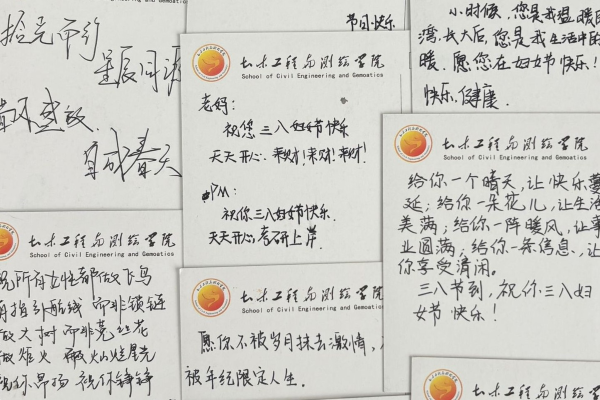 拾光而行
星辰同
自成春天
节日快乐
土木工程与测绘学院
School of Civil Engineering and Geomatics
老妈:
祝您三八妇女节快乐
天天开心,来财!来财!来财!
PM:
祝你三八妇女节快乐
天天开心,考研上岸
小时候,您是我温暖的
湾,长大后,您是我生活中的
暖。愿您在妇女节快乐!
快乐,健康。
土木工程与测绘学院
School of Civil Engineering and Geomatics
给你一个晴天,让快乐蔓
延;给你一朵花儿,让生活
美满;给你一阵暖风,让事
业圆满;给你一条信息,让
你享受清闲。
三八节到,祝你三八妇
女节快乐!
土木工程与测绘学院
School of Civil Engineering and Geomatics
祝所有女性都做飞鸟
有指引航线 而非锁链
做大树 而非菟丝花
做炸火 砸火山烂星光
祝你昂扬 祝你铮铮
土木工程与测绘学院
School of Civil Engineering and Geomatics
愿你不被岁月抹去激情,
被年纪限定人生。
土木工程与测绘学院
School of Civil Engineering and Geomatics